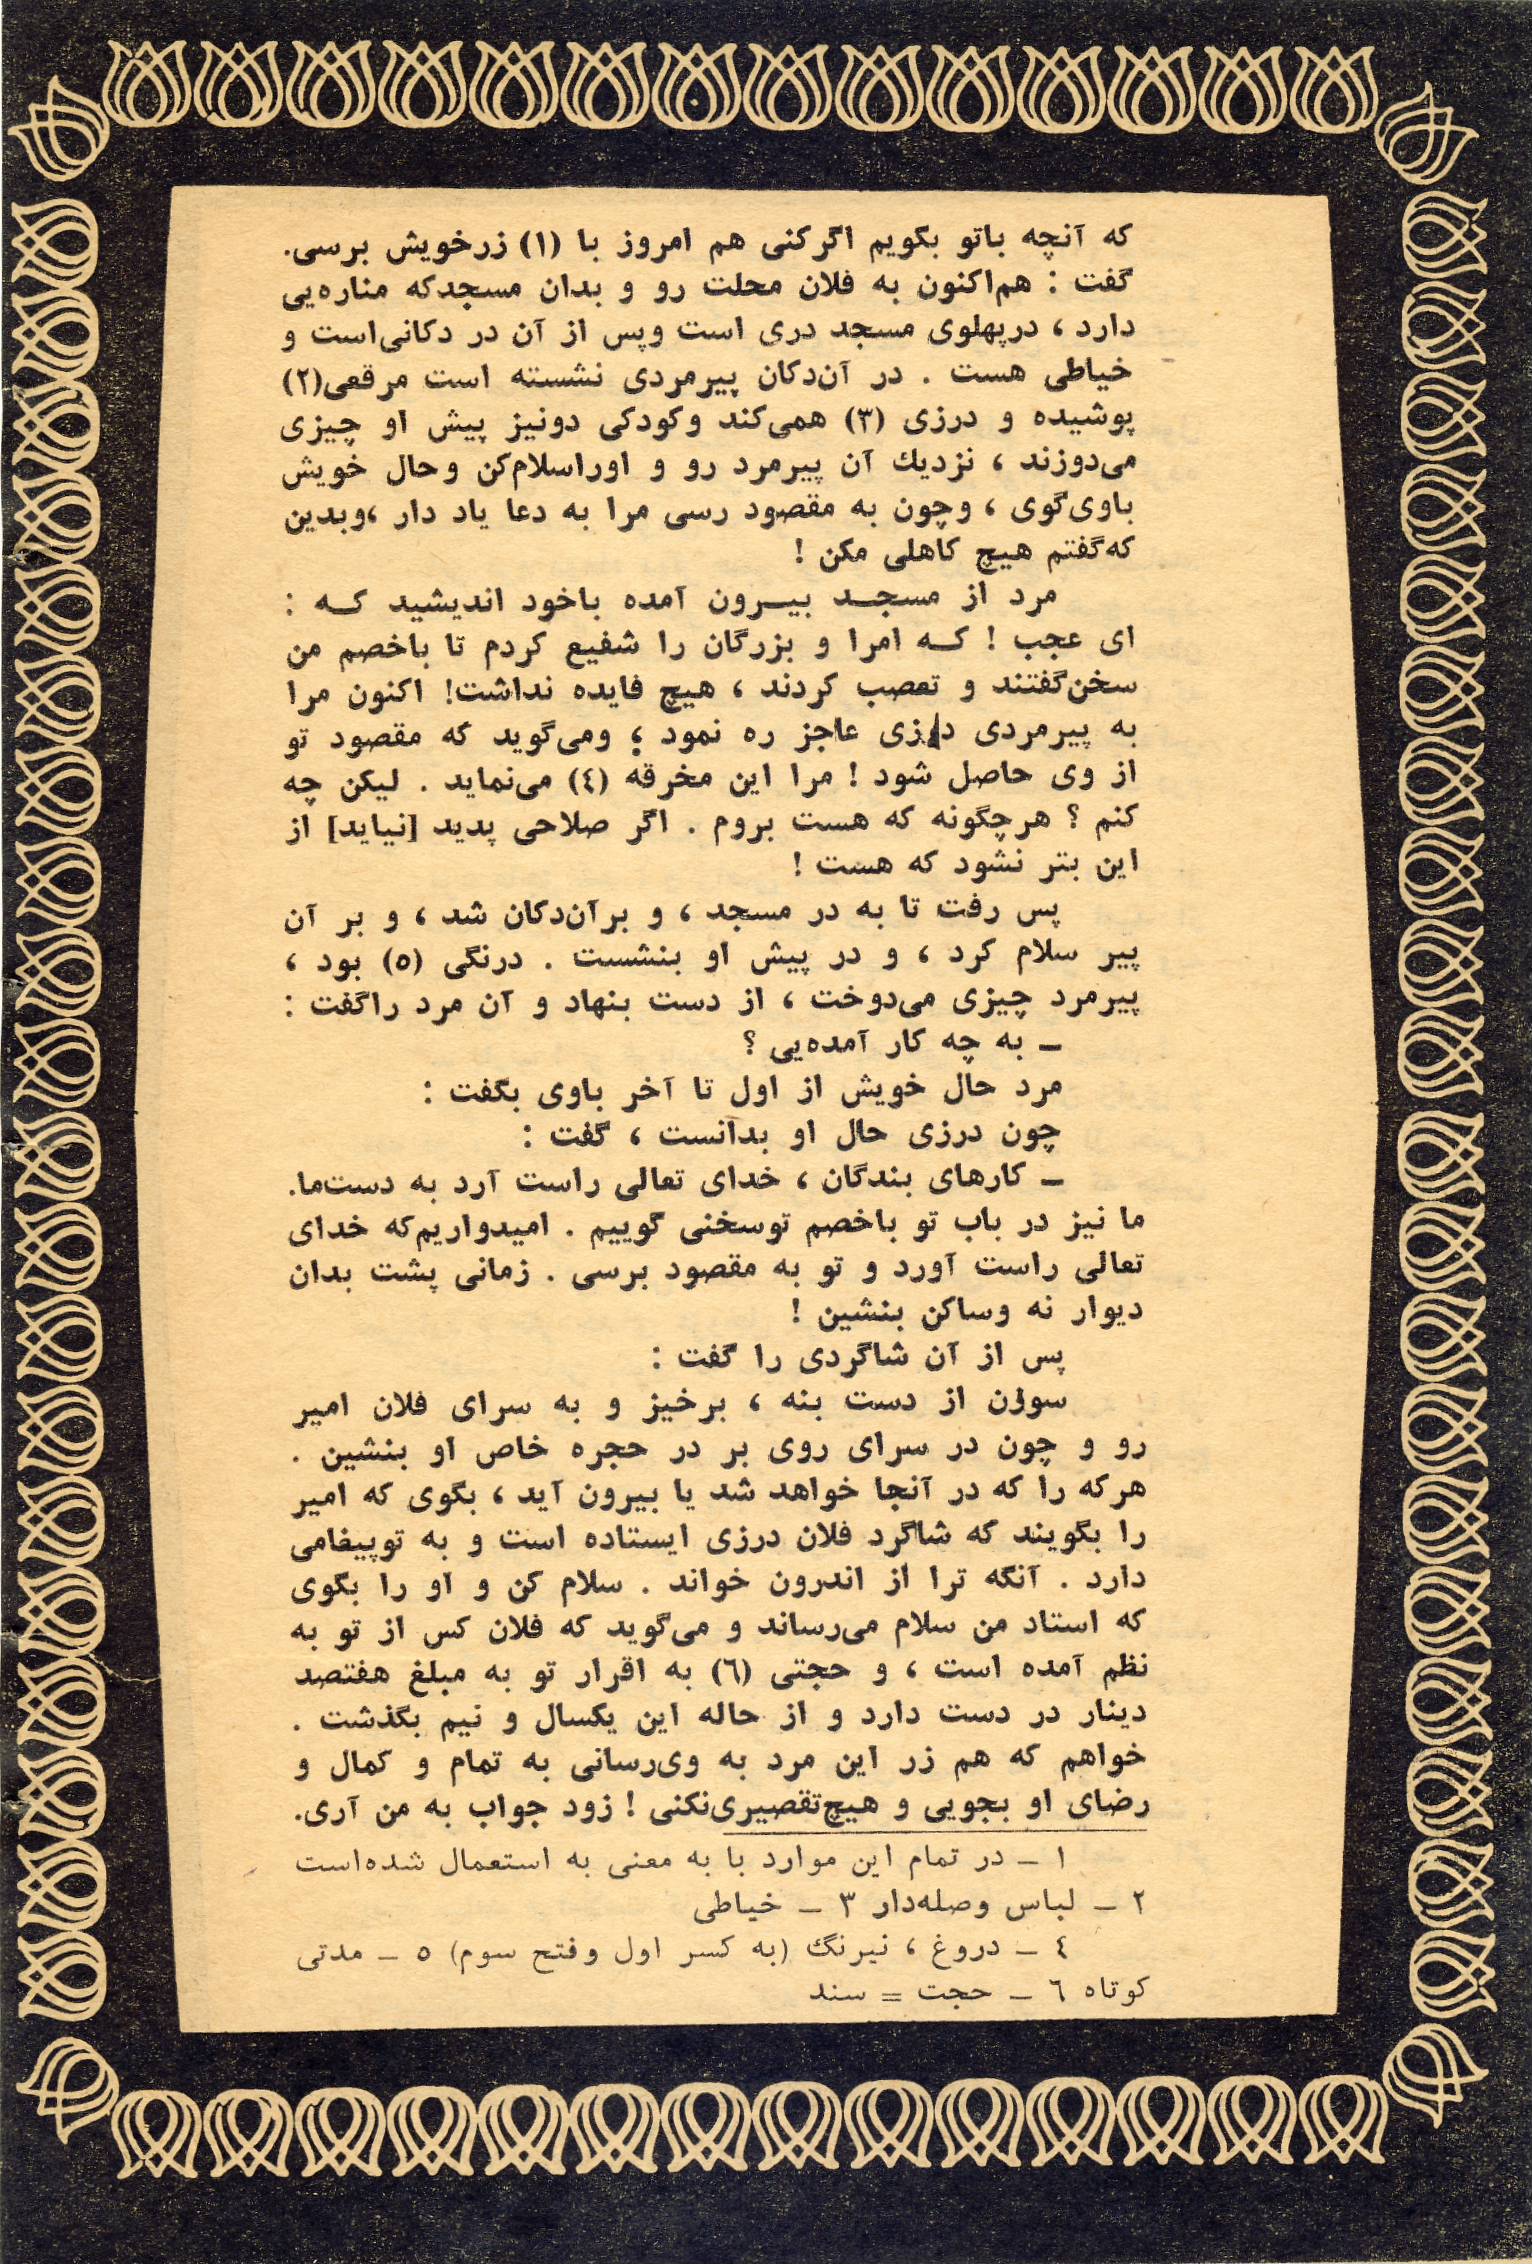 که آنچه باتو بگویم اگرکنی هم امروز با (۱) زرخویش برسی.
گفت : هم‌اکنون به فلان محلت رو و بدان مسجدکه مناره‌یی
دارد ، درپهلوی مسجد دری است وپس از آن در دکانی‌است و
خیاطی هست . در آن‌دکان پیرمردی نشسته است مرقعی(۲)
پوشیده و درزی (۳) همی‌کند وکودکی دونیز پیش او چیزی
می‌دوزند ، نزدیك آن پیرمرد رو و اوراسلام‌کن وحال خویش
باوی‌گوی ، وچون به مقصود رسی مرا به دعا یاد دار ،وبدین
که‌گفتم هیچ کاهلی مکن !
مرد از مسجـد بیـرون آمده باخود اندیشید کـه :
ای عجب ! کـه امرا و بزرگان را شفیع کردم تا باخصم من
سخن‌گفتند و تعصب کردند ، هیچ فایده نداشت! اکنون مرا
به پیرمردی درزی عاجز ره نمود ؛ ومی‌گوید که مقصود تو
از وی حاصل شود ! مرا این مخرقه (٤) می‌نماید . لیکن چه
کنم ؟ هرچگونه که هست بروم . اگر صلاحی پدید [نیاید] از
این بتر نشود که هست !
پس رفت تا به در مسجد ، و برآن‌دکان شد ، و بر آن
پیر سلام کرد ، و در پیش او بنشست . درنگی (٥) بود ،
پیرمرد چیزی می‌دوخت ، از دست بنهاد و آن مرد راگفت :
ـ به چه کار آمده‌یی ؟
مرد حال خویش از اول تا آخر باوی بگفت :
چون درزی حال او بدانست ، گفت :
ـ کارهای بندگان ، خدای تعالی راست آرد به دست‌ما.
ما نیز در باب تو باخصم توسخنی گوییم . امیدواریم‌که خدای
تعالی راست آورد و تو به مقصود برسی . زمانی پشت بدان
دیوار نه وساکن بنشین !
پس از آن شاگردی را گفت :
سوزن از دست بنه ، برخیز و به سرای فلان امیر
رو و چون در سرای روی بر در حجره خاص او بنشین .
هرکه را که در آنجا خواهد شد یا بیرون آید ، بگوی که امیر
را بگویند که شاگرد فلان درزی ایستاده است و به توپیغامی
دارد . آنگه ترا از اندرون خواند . سلام کن و او را بگوی
که استاد من سلام می‌رساند و می‌گوید که فلان کس از تو به
نظم آمده است ، و حجتی (٦) به اقرار تو به مبلغ هفتصد
دینار در دست دارد و از حاله این یکسال و نیم بگذشت .
خواهم که هم زر این مرد به وی‌رسانی به تمام و کمال و
رضای او بجویی و هیچ‌تقصیری‌نکنی ! زود جواب به من آری.
۱ ـ در تمام این موارد با به معنی به استعمال شده‌است
۲ ـ لباس وصله‌دار ۳ ـ خیاطی
٤ ـ دروغ ، نیرنگ (به کسر اول وفتح سوم) ٥ ـ مدتی
کوتاه ٦ ـ حجت = سند